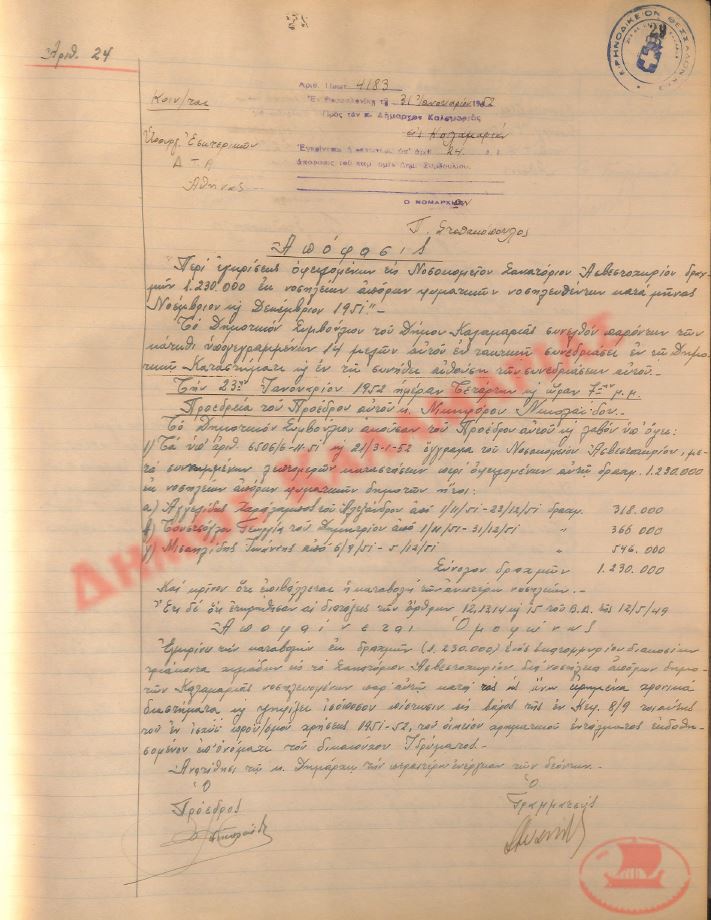 Ἀριθ. 24
ΕΙΡΗΝΟΔΙΚΕΙΟΝ ΘΕΣΣΑΛΟΝΙΚΗΣ
29
Κοιν/ται
Ὑπουργ. Ἐσωτερικῶν
Δ Τ Α
Ἀθήνας
Ἀριθ. Πρωτ. 4183
Ἐν Θεσσαλονίκῃ τῇ 31 Ἰανουαρίου 1952
Πρὸς τὸν κ. Δήμαρχον Καλαμαριᾶς
εἰς Καλαμαριὰν
Ἐγκρίνεται ἡ ὑπ' ἀριθ. 24
ἀπόφασις τοῦ Δημ. Συμβουλίου.
Ο ΝΟΜΑΡΧΗΣ
Π. Σταθακόπουλος
Ἀπόφασις
"Περὶ ἐγκρίσεως ὀφειλομένων εἰς Νοσοκομεῖον Σανατόριον Ἀσβεστοχωρίου δραχ-
μῶν 1.230.000 ἐκ νοσηλείων ἀπόρων φυματικῶν νοσηλευθέντων κατὰ μῆνας
Νοέμβριον κ Δεκέμβριον 1951"-
Τὸ Δημοτικὸν Συμβούλιον τοῦ Δήμου Καλαμαριᾶς συνελθὸν παρόντων τῶν
κάτωθι ὑπογεγραμμένων 14 μελῶν αὐτοῦ ἐν τακτικῇ συνεδριάσει ἐν τῷ Δημο-
τικῷ Καταστήματι κ ἐν τῇ συνήθει αἰθούσῃ τῶν συνεδριάσεων αὐτοῦ.
Τὴν 23ην Ἰανουαρίου 1952 ἡμέραν Τετάρτην κ ὥραν 7ην μ.μ.
Προεδρεία τοῦ Προέδρου αὐτοῦ κ. Νικηφόρου Νικολαΐδου.
Τὸ Δημοτικὸν Συμβούλιον ἀκοῦσαν τοῦ Προέδρου αὐτοῦ κ λαβὸν ὑπ' ὄψει:
1) Τὰ ὑπ' ἀριθ. 6506/6-11-51 κ 21/3-1-52 ἔγγραφα τοῦ Νοσοκομείου Ἀσβεστοχωρίου, με-
τὰ συνημμένων λεπτομερῶν καταστάσεων περὶ ὀφειλομένων αὐτῷ δραχμ. 1.230.000
ἐκ νοσηλείων ἀπόρων φυματικῶν δημοτῶν ἤτοι:
α) Ἀγγελίδης Χαράλαμπος τοῦ Ἀλεξάνδρου ἀπὸ 1/11/51-23/12/51 δραχμ. 318.000
β) Γεωργία τοῦ Δημητρίου ἀπὸ 1/11/51-31/12/51 " 366 000
γ) Μισαηλίδης Ἰωάννης ἀπὸ 6/9/51-5/12/51 " 546.000
Σύνολον δραχμῶν 1.230.000
Καὶ κρίνον ὅτι ἐπιβάλλεται ἡ καταβολὴ τῶν ἀνωτέρω νοσηλείων.-
Ἔτι δὲ ὅτι ἐτηρήθησαν αἱ διατάξεις τῶν ἄρθρων 12,13,14 κ 15 τοῦ Β.Δ. τῆς 12/5/49
Ἀποφαίνεται Ὁμοφώνως
Ἐγκρίνει τὴν καταβολὴν ἐκ δραχμῶν (1.230.000) ἑνὸς ἑκατομμυρίου διακοσίων
τριάκοντα χιλιάδων εἰς τὸ Σανατόριον Ἀσβεστοχωρίου διὰ νοσήλεια ἀπόρων δημο-
τῶν Καλαμαριᾶς νοσηλευομένων παρ' αὐτῷ κατὰ τὰ ὡς ἄνω χρονικὰ
διαστήματα κ ψηφίζει ἰσόποσον πίστωσιν εἰς βάρος τῆς ἐν Κεφ. 8/9
τοῦ ἐν ἰσχύϊ προϋ/σμοῦ χρήσεως 1951-52, τοῦ οἰκείου χρηματικοῦ ἐντάλματος ἐκδοθη-
σομένου ἐπ' ὀνόματι τοῦ δικαιούχου Ἱδρύματος.-
Ἀνατίθησι τῷ κ. Δημάρχῳ τὴν περαιτέρω ἐνέργειαν τῶν δεόντων.-
Ὁ Ὁ
Πρόεδρος Γραμματεὺς
ΔΗΜΟΣ ΚΑΛΑΜΑΡΙΑΣ